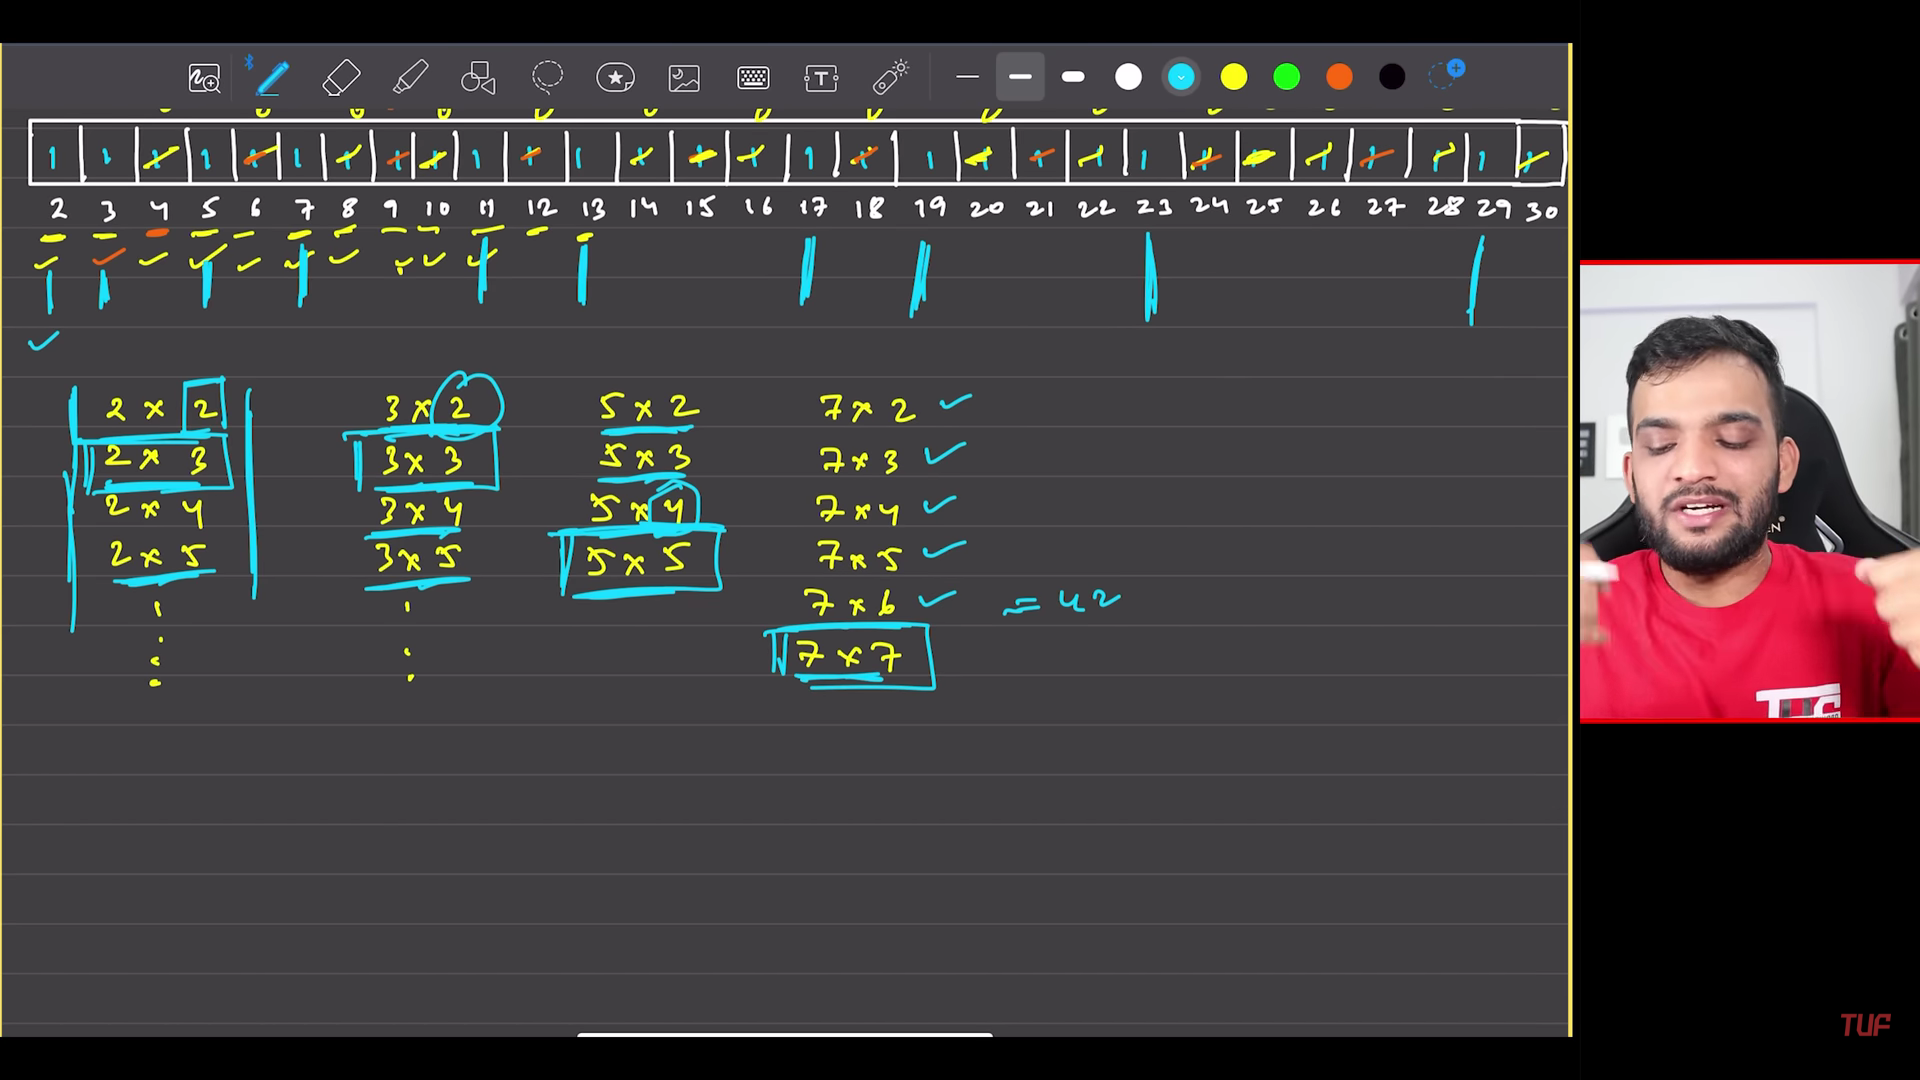 1 1 1 1 1 1 1 1 1 1 1 1 1 1 1 1 1 1 1 1 1 1 1 1 1 1 1 1 1
2 3 4 5 6 7 8 9 10 11 12 13 14 15 16 17 18 19 20 21 22 23 24 25 26 27 28 29 30
2 x 2 3 x 2 5 x 2 7 x 2
2 x 3 3 x 3 5 x 3 7 x 3
2 x 4 3 x 4 5 x 4 7 x 4
2 x 5 3 x 5 5 x 5 7 x 5
7 x 6 = 42
7 x 7
TUF